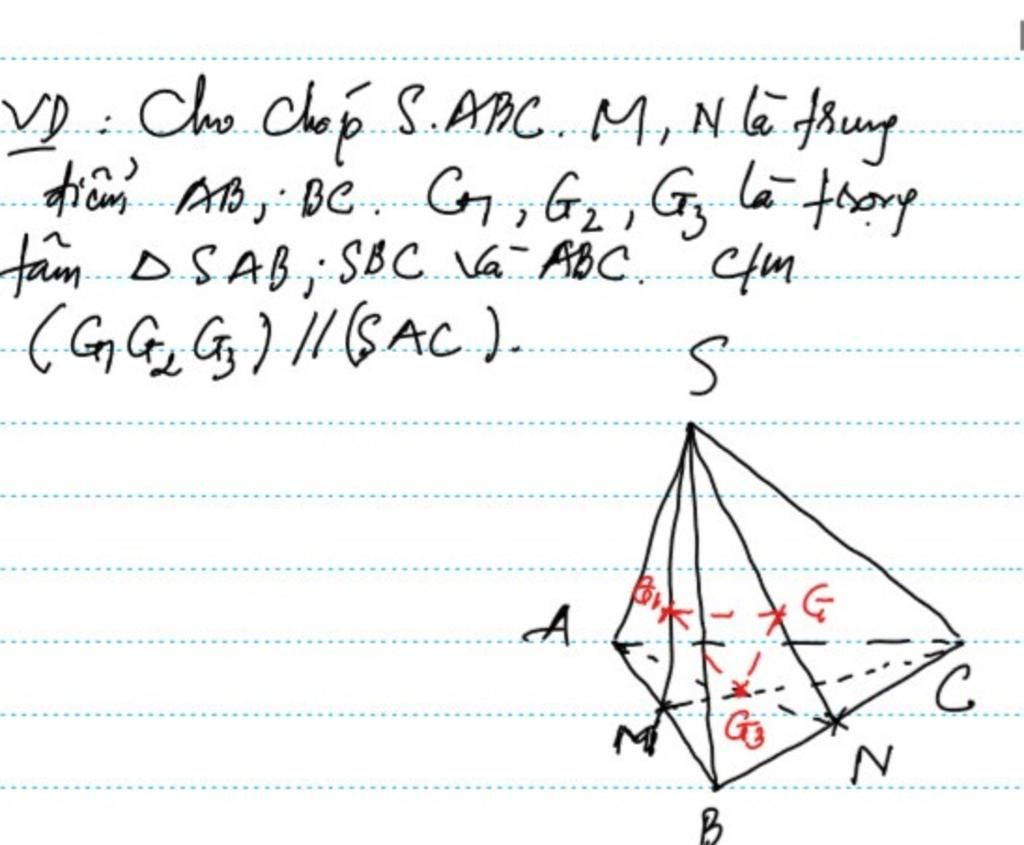 VD : Cho chóp S.ABC. M, N là trung
điểm AB; BC. G1, G2, G3 là trọng
tâm Δ SAB; SBC và ABC. c/m
(G1G2G3) // (SAC).
S
G1 G
A
C
M G3
N
B